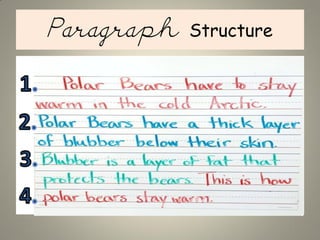 Paragraph Structure
1. Polar Bears have to stay
warm in the cold Arctic.
2. Polar Bears have a thick layer
of blubber below their skin.
3. Blubber is a layer of fat that
protects the bears. This is how
4. polar bears stay warm.